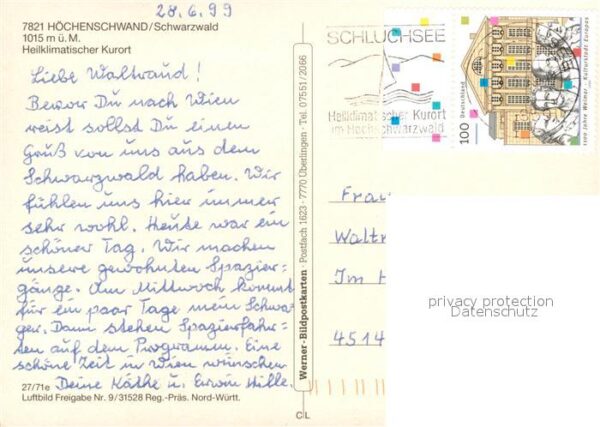 28.6.99
7821 HÖCHENSCHWAND/Schwarzwald
1015 m ü. M.
Heilklimatischer Kurort
Liebe Waltraud!
Bevor Du nach Wien
reist sollst Du einen
Gruß von uns aus dem
Schwarzwald haben. Wir
fühlen uns hier immer
sehr wohl. Heute war ein
schöner Tag. Wir machen
unsere gewohnten Spazier=
gänge. Am Mittwoch kommt
für ein paar Tage mein Schwa=
ger. Dann stehen Spazierfahr=
ten auf dem Programm. Eine
schöne Zeit in Wien wünschen
Deine Käthe u. Erwin Hille.
27/71e
Luftbild Freigabe Nr. 9/31528 Reg.-Präs. Nord-Württ.
Werner-Bildpostkarten · Postfach 1623 · 7770 Überlingen · Tel. 07551/2066
C L
SCHLUCHSEE
Heilklimatischer Kurort
im Hochschwarzwald
Deutschland
100
Weimar Kulturstadt Europas
Frau
Waltr
Im H
4514
privacy protection
Datenschutz